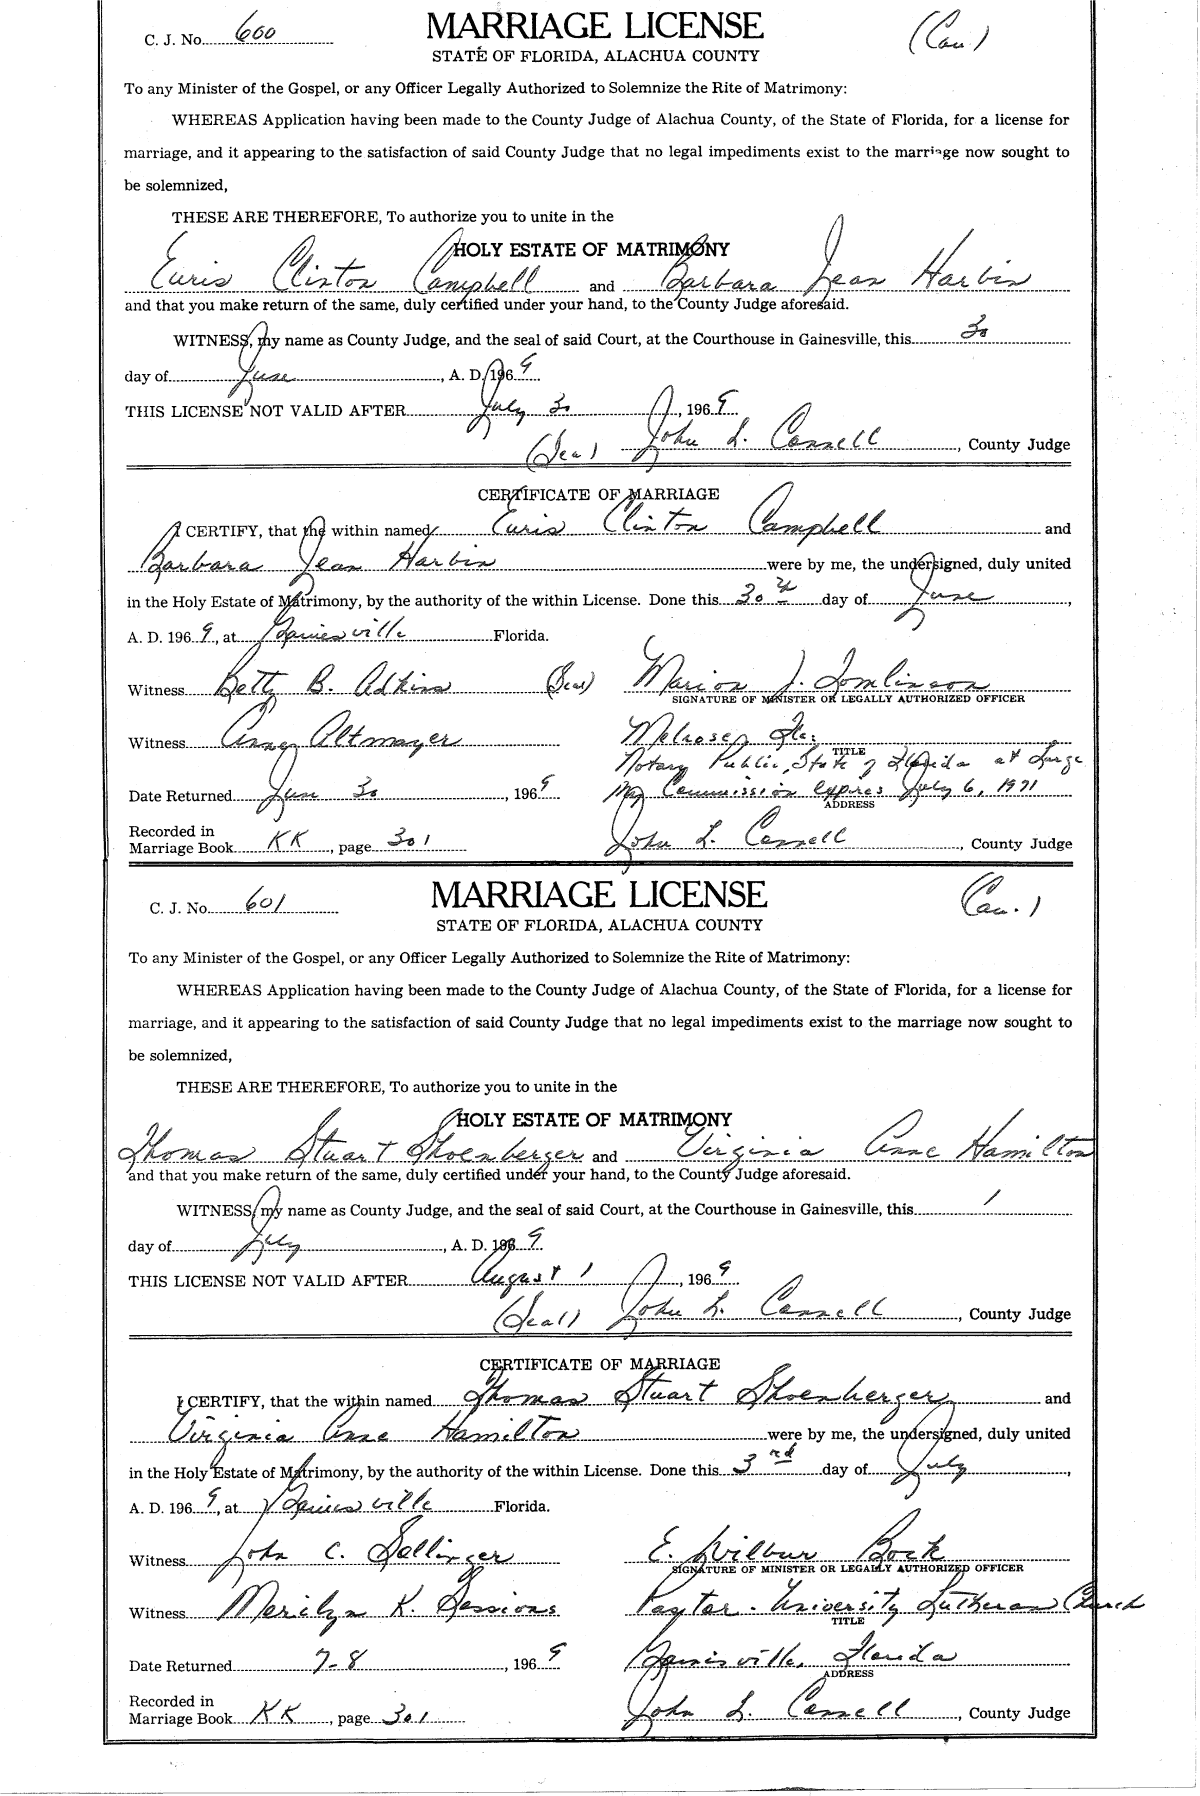 C. J. No. 600 MARRIAGE LICENSE (Cau.)
STATE OF FLORIDA, ALACHUA COUNTY
To any Minister of the Gospel, or any Officer Legally Authorized to Solemnize the Rite of Matrimony:
WHEREAS Application having been made to the County Judge of Alachua County, of the State of Florida, for a license for
marriage, and it appearing to the satisfaction of said County Judge that no legal impediments exist to the marriage now sought to
be solemnized,
THESE ARE THEREFORE, To authorize you to unite in the
HOLY ESTATE OF MATRIMONY
Euris Clinton Campbell and Barbara Jean Harbin
and that you make return of the same, duly certified under your hand, to the County Judge aforesaid.
WITNESS, my name as County Judge, and the seal of said Court, at the Courthouse in Gainesville, this 30
day of June, A. D. 1969
THIS LICENSE NOT VALID AFTER July 30, 1969
(Seal) John L. Connell, County Judge
CERTIFICATE OF MARRIAGE
I CERTIFY, that the within named Euris Clinton Campbell and
Barbara Jean Harbin were by me, the undersigned, duly united
in the Holy Estate of Matrimony, by the authority of the within License. Done this 30th day of June,
A. D. 1969, at Gainesville Florida.
Witness Betty B. Adkins (Seal) Marion J. Tomlinson
SIGNATURE OF MINISTER OR LEGALLY AUTHORIZED OFFICER
Witness Anne Altmayer Melrose, Fla.
TITLE
Notary Public, State of Florida at Large
Date Returned Jun 30, 1969 My Commission expires July 6, 1971
ADDRESS
Recorded in
Marriage Book KK, page 301 John L. Connell, County Judge
C. J. No. 601 MARRIAGE LICENSE (Cau.)
STATE OF FLORIDA, ALACHUA COUNTY
To any Minister of the Gospel, or any Officer Legally Authorized to Solemnize the Rite of Matrimony:
WHEREAS Application having been made to the County Judge of Alachua County, of the State of Florida, for a license for
marriage, and it appearing to the satisfaction of said County Judge that no legal impediments exist to the marriage now sought to
be solemnized,
THESE ARE THEREFORE, To authorize you to unite in the
HOLY ESTATE OF MATRIMONY
Thomas Stuart Shoenberger and Virginia Anne Hamilton
and that you make return of the same, duly certified under your hand, to the County Judge aforesaid.
WITNESS, my name as County Judge, and the seal of said Court, at the Courthouse in Gainesville, this 1
day of July, A. D. 1969
THIS LICENSE NOT VALID AFTER August 1, 1969
(Seal) John L. Connell, County Judge
CERTIFICATE OF MARRIAGE
I CERTIFY, that the within named Thomas Stuart Shoenberger and
Virginia Anne Hamilton were by me, the undersigned, duly united
in the Holy Estate of Matrimony, by the authority of the within License. Done this 3rd day of July,
A. D. 1969, at Gainesville Florida.
Witness John C. Sellinger E. Wilbur Bock
SIGNATURE OF MINISTER OR LEGALLY AUTHORIZED OFFICER
Witness Merilyn K. Sessions Pastor - University Lutheran Church
TITLE
Date Returned 7-8, 1969 Gainesville, Florida
ADDRESS
Recorded in
Marriage Book KK, page 301 John L. Connell, County Judge